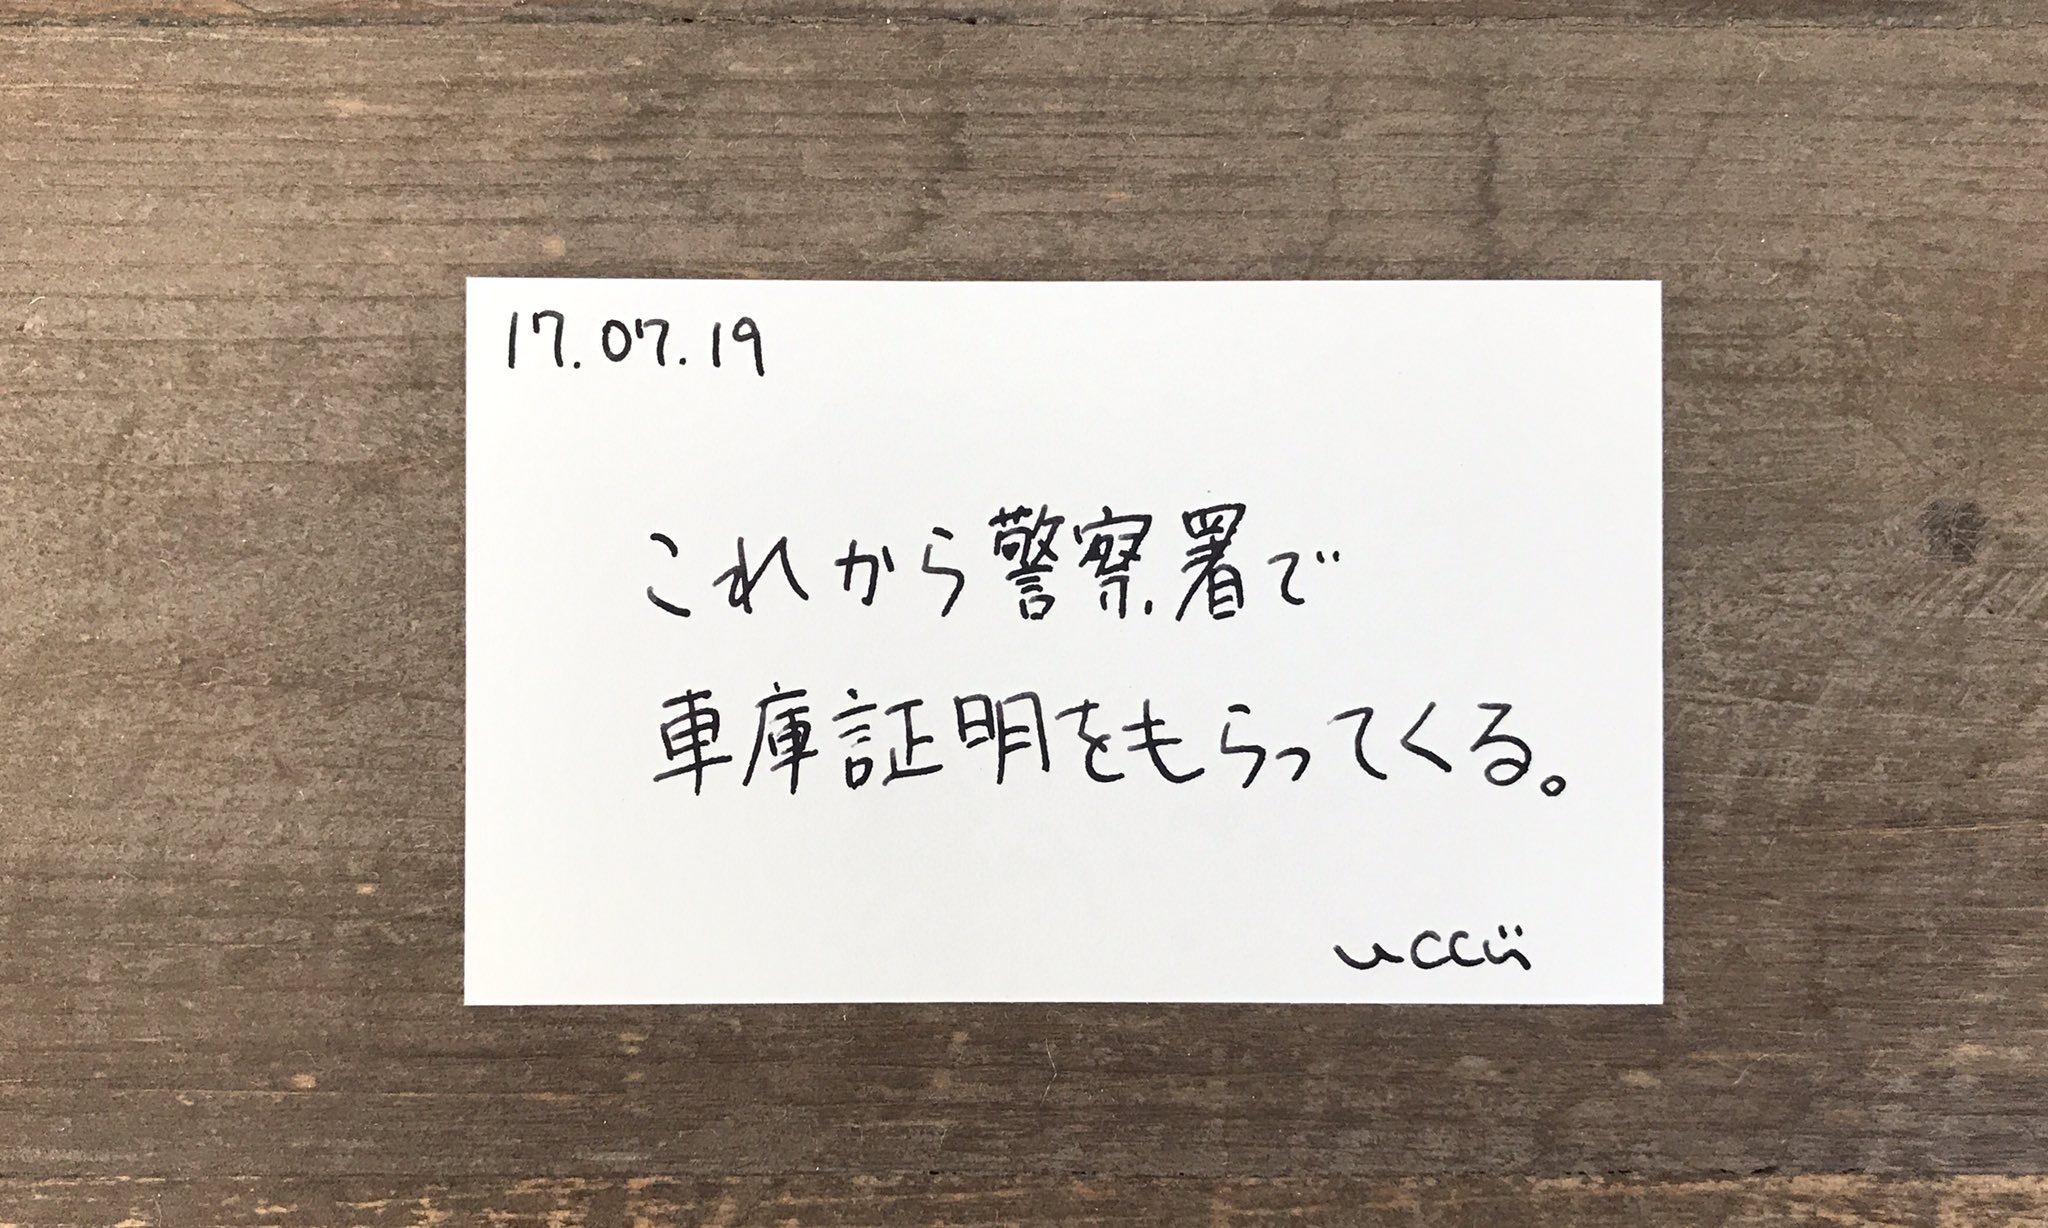 17.07.19
これから警察署で
車庫証明をもらってくる。